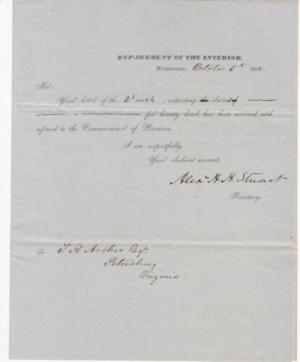 DEPARTMENT OF THE INTERIOR,
Washington, October 5th 1850.
Sir:
Your letter of the 2d inst., respecting the claim of
for bounty land, has been received and
referred to the Commissioner of Pensions.
I am, respectfully,
Your obedient servant,
Alex. H. H. Stuart
Secretary.
To
T. H. Archer Esq.
Petersburg
Virginia